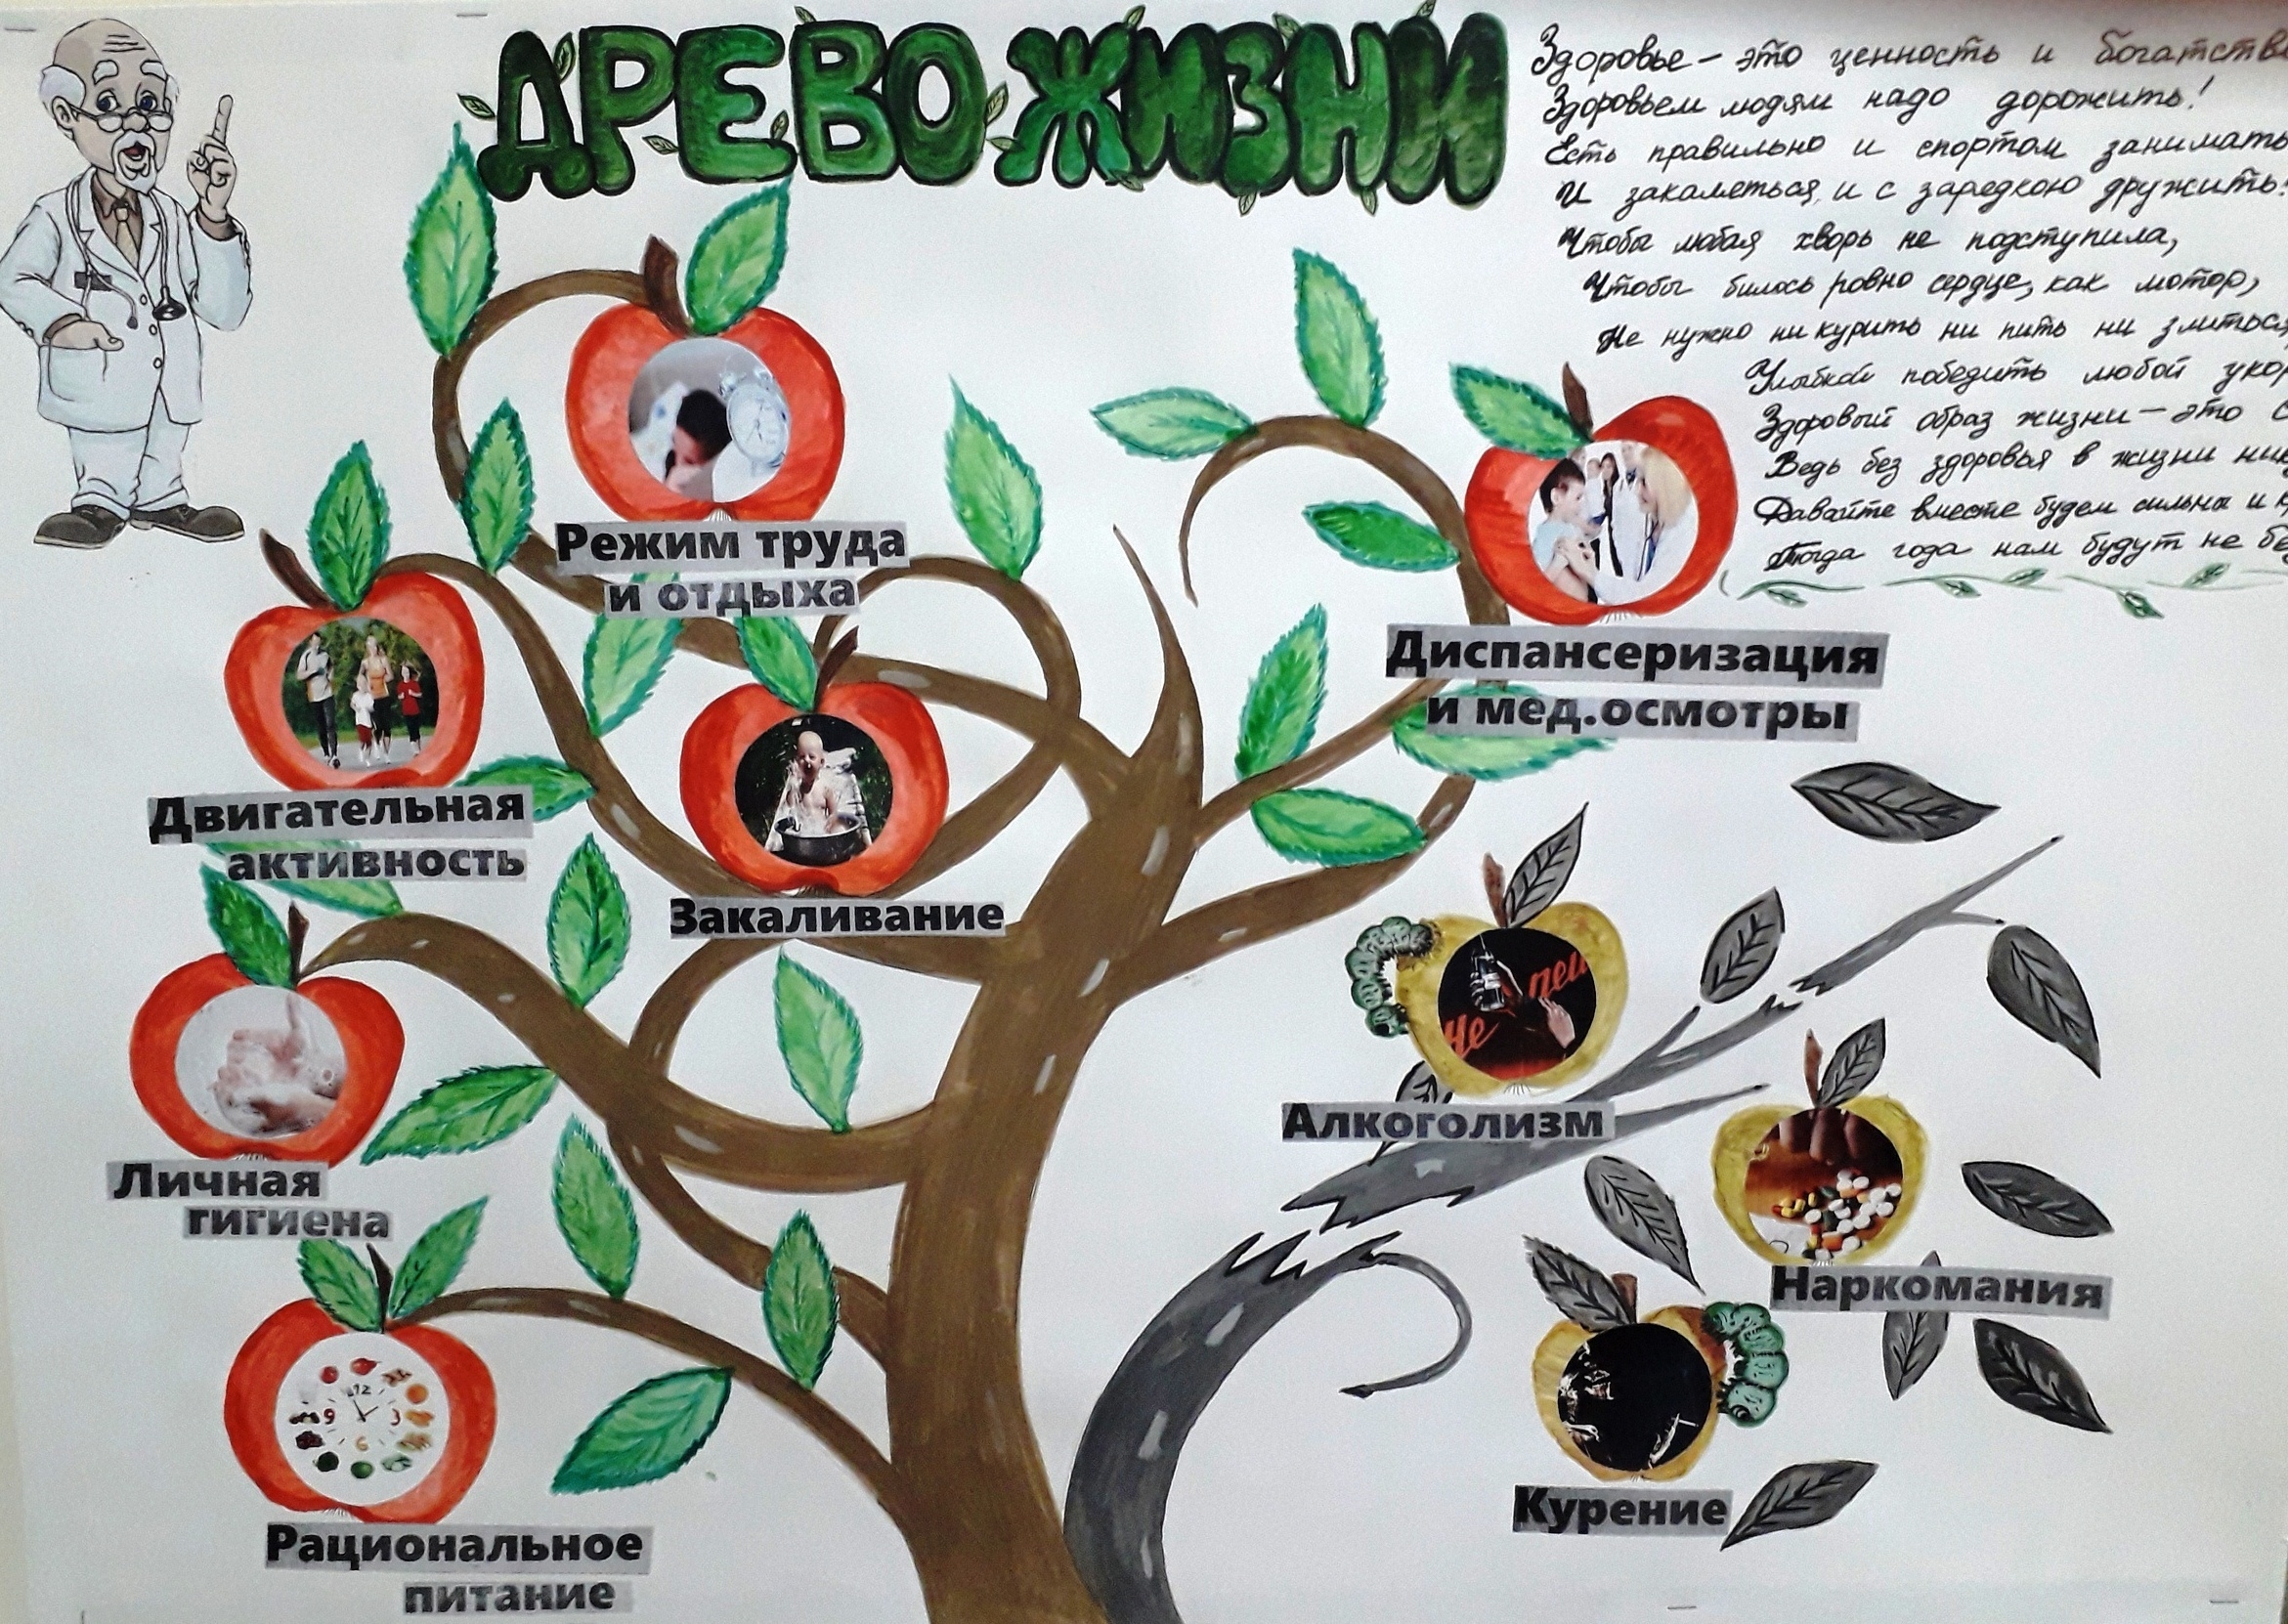 ДРЕВО ЖИЗНИ
Здоровье – это ценность и богатств
Здоровьем людям надо дорожить!
Есть правильно и спортом занимать
И закаляться, и с зарядкою дружить!
Чтобы любая хворь не подступила,
Чтобы билось ровно сердце, как мотор,
Не нужно ни курить ни пить ни злиться,
Улыбкой победить любой укор
Здоровый образ жизни – это с
Ведь без здоровья в жизни ник
Давайте вместе будем сильны и к
Тогда года нам будут не бе
Режим труда
и отдыха
Диспансеризация
и мед.осмотры
Двигательная
активность
Закаливание
Личная
гигиена
Рациональное
питание
12
3
6
9
Не пей
Алкоголизм
Наркомания
Курение